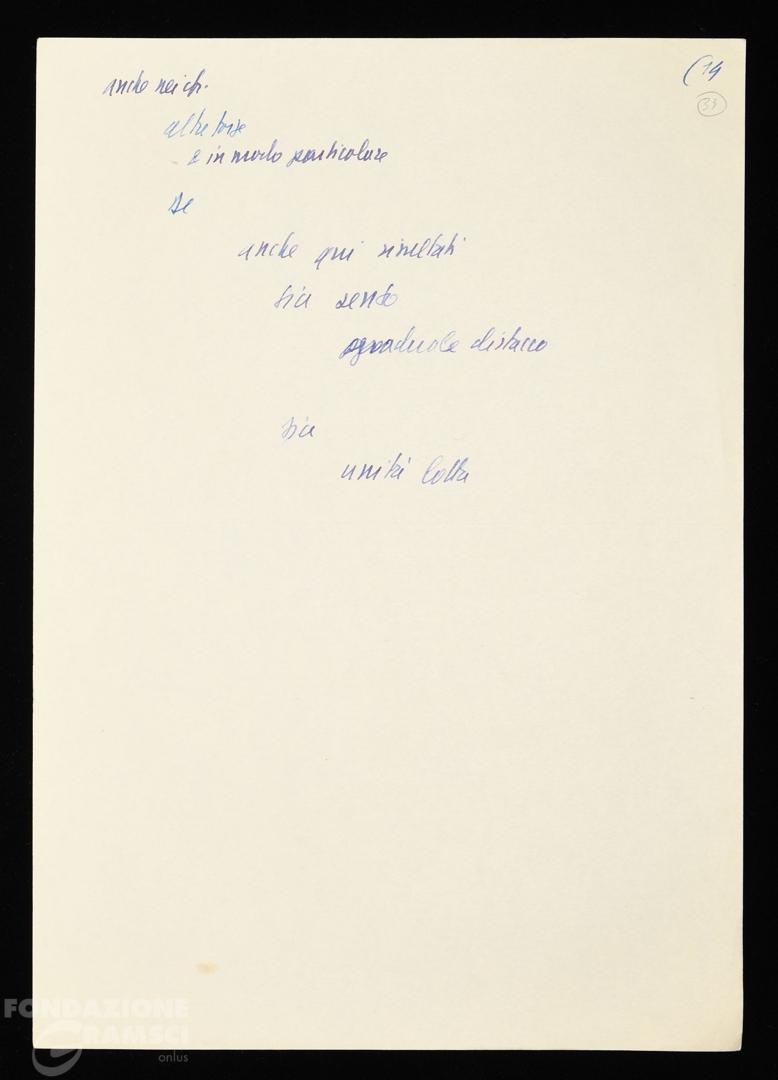 (14
33
anche nei ch.
altre forze
e in modo particolare
se
anche qui risultati
sia senso
graduale distacco
sia
unità lotta
FONDAZIONE
GRAMSCI
onlus